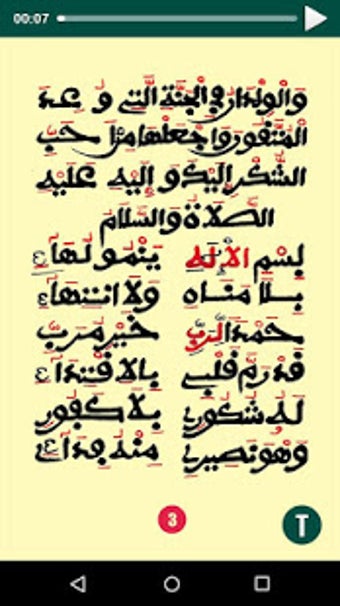 00:07
والولدان في الجنة التي وعد
المتقون واجعلها من احب
الشكر إليك وإليه عليه
الصلاة والسلام
بسم الإله ينمو لهاء
بلا مناه ولا انتهاء
حمدا لرب خير مرب
قد رم قلبي بالاقتداء
له شكوري بلا كفور
وهو نصيري منه فداء
3
T